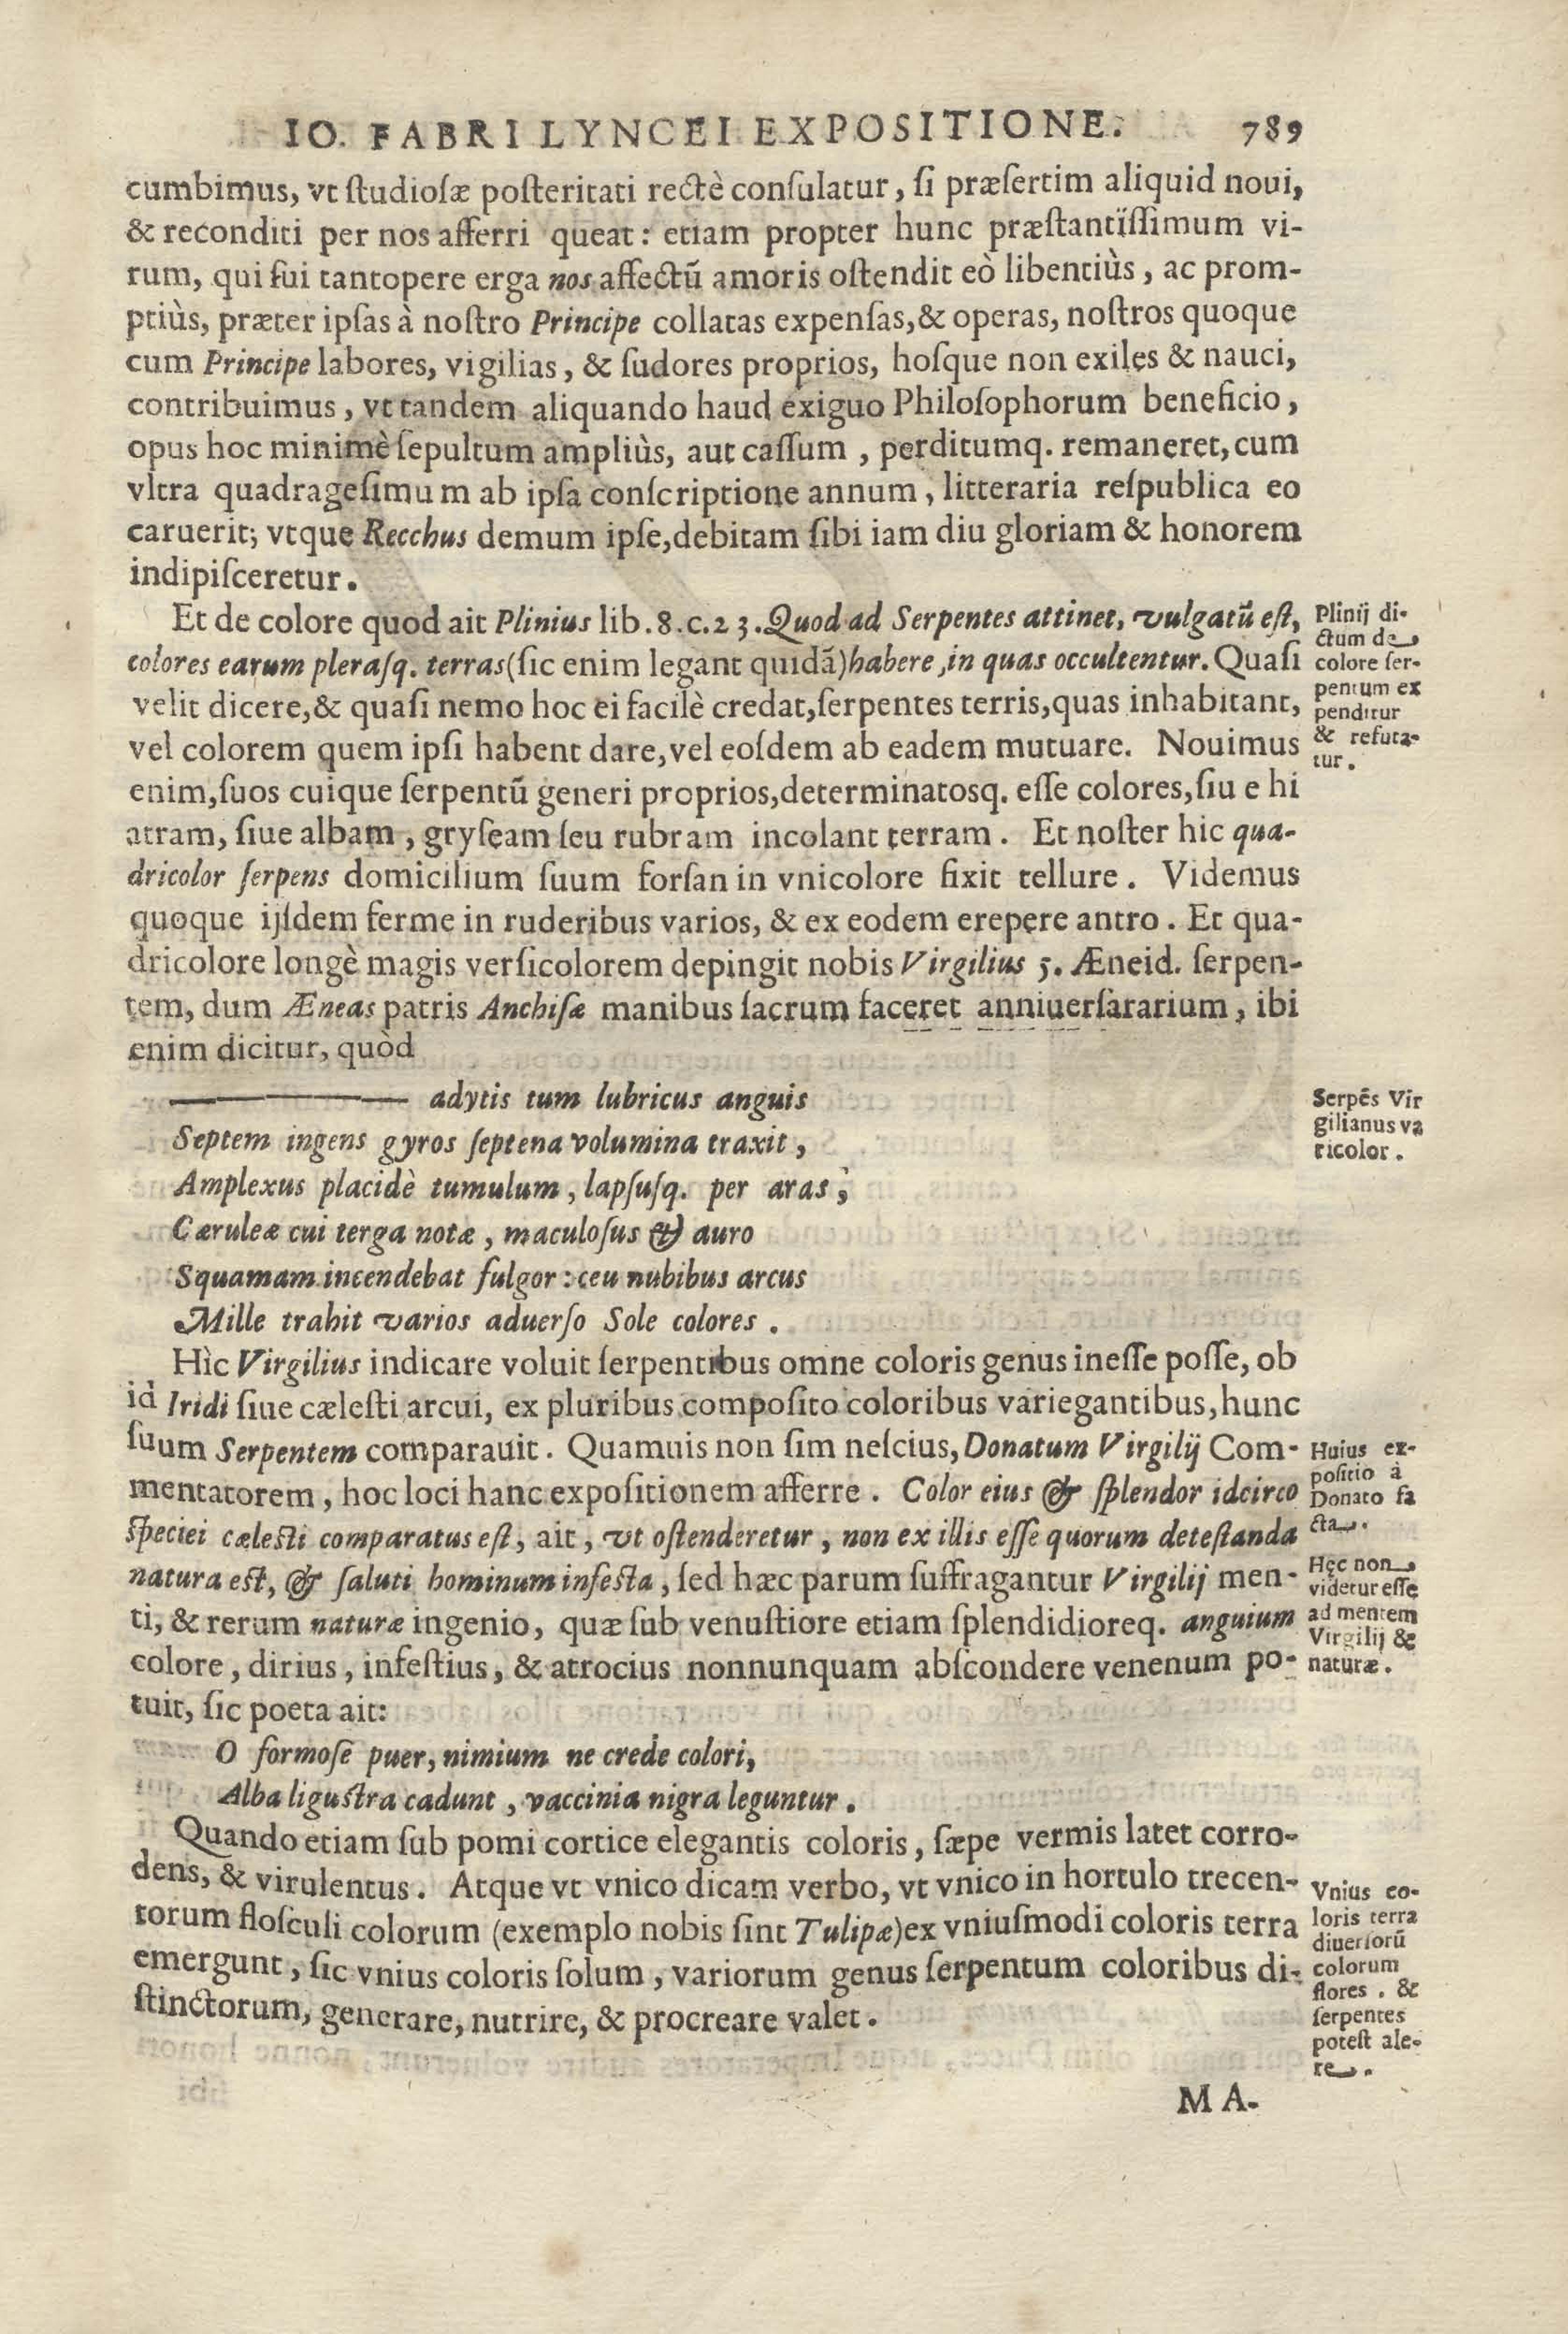 IO. FABRI LYNCEI EXPOSITIONE. 789
cumbimus, vt ſtudioſæ poſteritati rectè conſulatur, ſi præſertim aliquid noui,
& reconditi per nos afferri queat: etiam propter hunc præſtantiſſimum vi-
rum, qui ſui tantopere erga nos affectũ amoris oſtendit eò libentiùs, ac prom-
ptiùs, præter ipſas à noſtro Principe collatas expenſas, & operas, noſtros quoque
cum Principe labores, vigilias, & ſudores proprios, hoſque non exiles & nauci,
contribuimus, vt tandem aliquando haud exiguo Philoſophorum beneficio,
opus hoc minimè ſepultum ampliùs, aut caſſum, perditumq. remaneret, cum
vltra quadrageſimum ab ipſa conſcriptione annum, litteraria reſpublica eo
caruerit; vtque Recchus demum ipſe, debitam ſibi iam diu gloriam & honorem
indipiſceretur.
Et de colore quod ait Plinius lib. 8. c. 23. Quod ad Serpentes attinet, vulgatũ eſt,
colores earum pleraſq. terras (ſic enim legant quidã) habere, in quas occultentur. Quaſi
velit dicere, & quaſi nemo hoc ei facilè credat, ſerpentes terris, quas inhabitant,
vel colorem quem ipſi habent dare, vel eoſdem ab eadem mutuare. Nouimus
enim, ſuos cuique ſerpentũ generi proprios, determinatosq. eſſe colores, ſiu e hi
atram, ſiue albam, gryſeam ſeu rubram incolant terram. Et noſter hic qua-
dricolor ſerpens domicilium ſuum forſan in vnicolore fixit tellure. Videmus
quoque ijſdem ferme in ruderibus varios, & ex eodem erepere antro. Et qua-
dricolore longè magis verſicolorem depingit nobis Virgilius 5. Æneid. ſerpen-
tem, dum Æneas patris Anchiſæ manibus ſacrum faceret anniuerſararium, ibi
enim dicitur, quòd
Plinij di-
ctum de
colore ſer-
pentum ex
penditur
& refuta-
tur.
—— adytis tum lubricus anguis
Septem ingens gyros ſeptena volumina traxit,
Amplexus placidè tumulum, lapſuſq. per aras;
Cæruleæ cui terga notæ, maculoſus & auro
Squamam incendebat fulgor: ceu nubibus arcus
Mille trahit varios aduerſo Sole colores.
Serpẽs Vir
gilianus va
ricolor.
Hìc Virgilius indicare voluit ſerpentibus omne coloris genus ineſſe poſſe, ob
id Iridi ſiue cæleſti arcui, ex pluribus compoſito coloribus variegantibus, hunc
ſuum Serpentem comparauit. Quamuis non ſim neſcius, Donatum Virgilij Com-
mentatorem, hoc loci hanc expoſitionem afferre. Color eius & ſplendor idcirco
ſpeciei cæleſti comparatus eſt, ait, vt oſtenderetur, non ex illis eſſe quorum deteſtanda
natura eſt, & ſaluti hominum infeſta, ſed hæc parum ſuffragantur Virgilij men-
ti, & rerum naturæ ingenio, quæ ſub venuſtiore etiam ſplendidioreq. anguium
colore, dirius, infeſtius, & atrocius nonnunquam abſcondere venenum po-
tuit, ſic poeta ait:
Huius ex-
poſitio à
Donato fa
cta.
Hęc non
videtur eſſe
ad mentem
Virgilij &
naturæ.
O formoſe puer, nimium ne crede colori,
Alba liguſtra cadunt, vaccinia nigra leguntur.
Quando etiam ſub pomi cortice elegantis coloris, ſæpe vermis latet corro-
dens, & virulentus. Atque vt vnico dicam verbo, vt vnico in hortulo trecen-
torum floſculi colorum (exemplo nobis ſint Tulipæ) ex vniuſmodi coloris terra
emergunt, ſic vnius coloris ſolum, variorum genus ſerpentum coloribus di-
ſtinctorum, generare, nutrire, & procreare valet.
Vnius co-
loris terra
diuerſorũ
colorum
flores. &
ſerpentes
poteſt ale-
re.
MA-